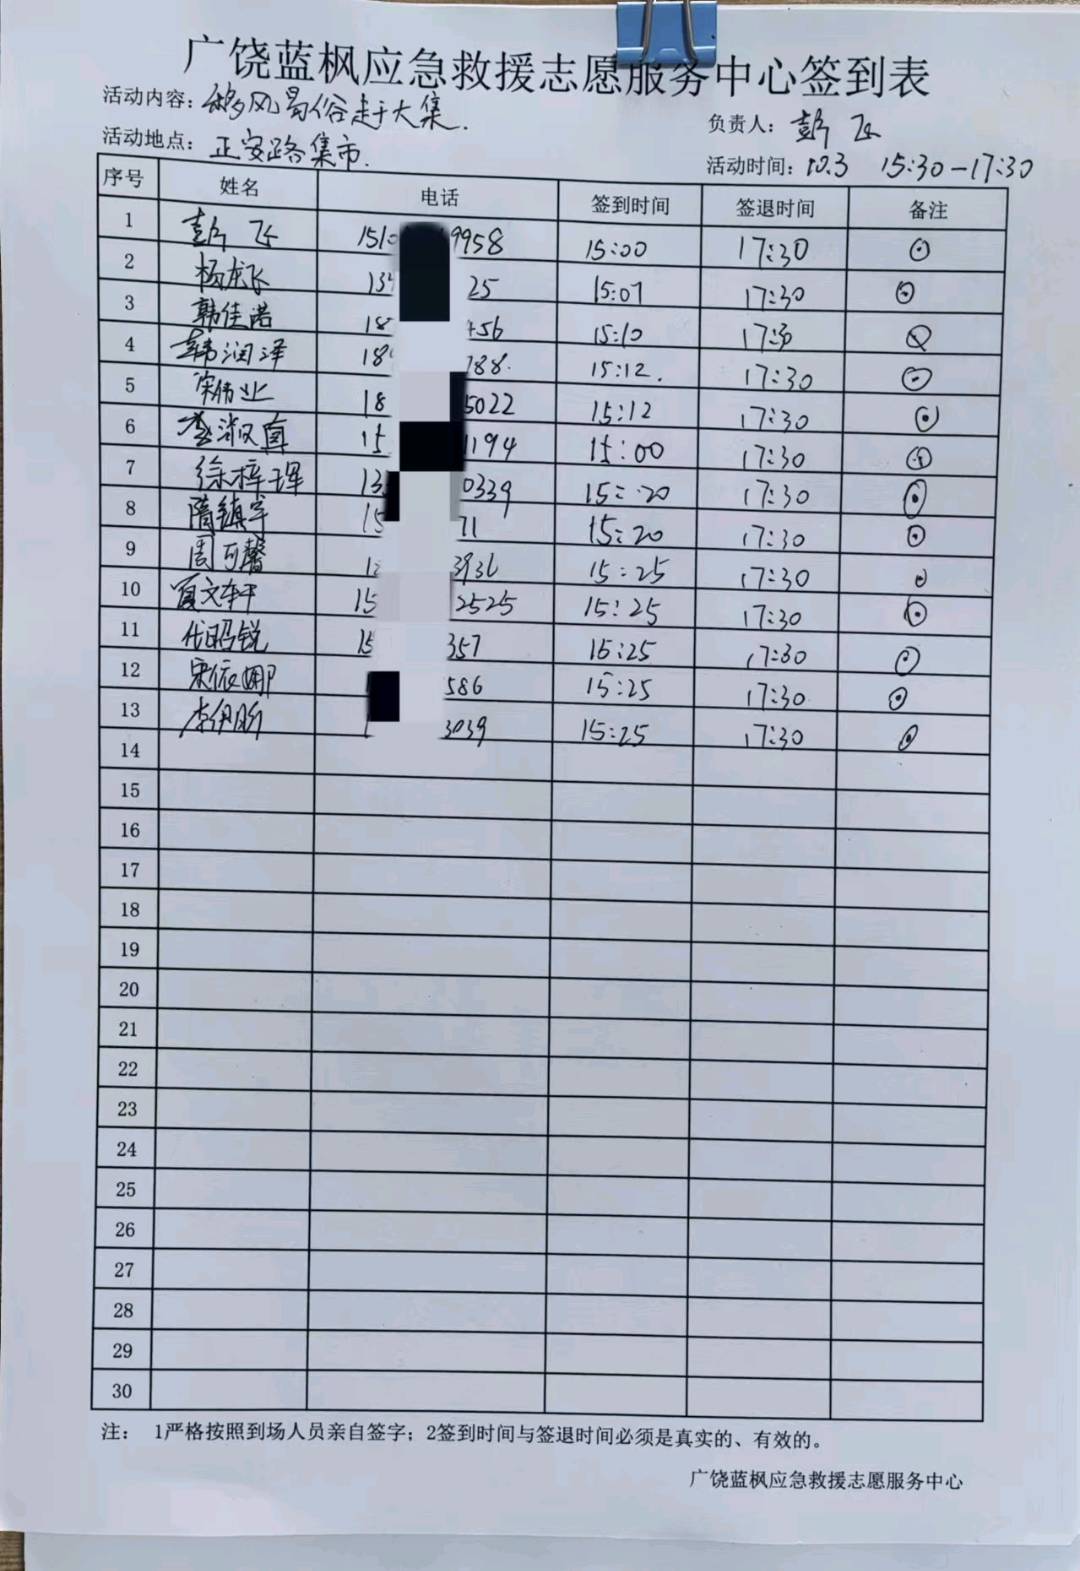 广饶蓝枫应急救援志愿服务中心签到表
活动内容：移风易俗走于大集.
负责人：彭飞
活动地点：正安路集市.
活动时间：10.3 15:30-17:30
序号 姓名 电话 签到时间 签退时间 备注
1 彭飞 151 9958 15:00 17:30
2 杨龙飞 13 25 15:07 17:30
3 韩佳诺 18 456 15:10 17:30
4 韩润泽 18 788. 15:12. 17:30
5 宋伟业 18 5022 15:12 17:30
6 李淑真 15 1194 15:00 17:30
7 徐梓珲 13 0339 15:20 17:30
8 隋镇宇 15 71 15:20 17:30
9 周可馨 3936 15:25 17:30
10 夏文轩 15 2525 15:25 17:30
11 代昭锐 15 357 15:25 17:30
12 宋依娜 586 15:25 17:30
13 李伊 3039 15:25 17:30
14
15
16
17
18
19
20
21
22
23
24
25
26
27
28
29
30
注： 1严格按照到场人员亲自签字；2签到时间与签退时间必须是真实的、有效的。
广饶蓝枫应急救援志愿服务中心